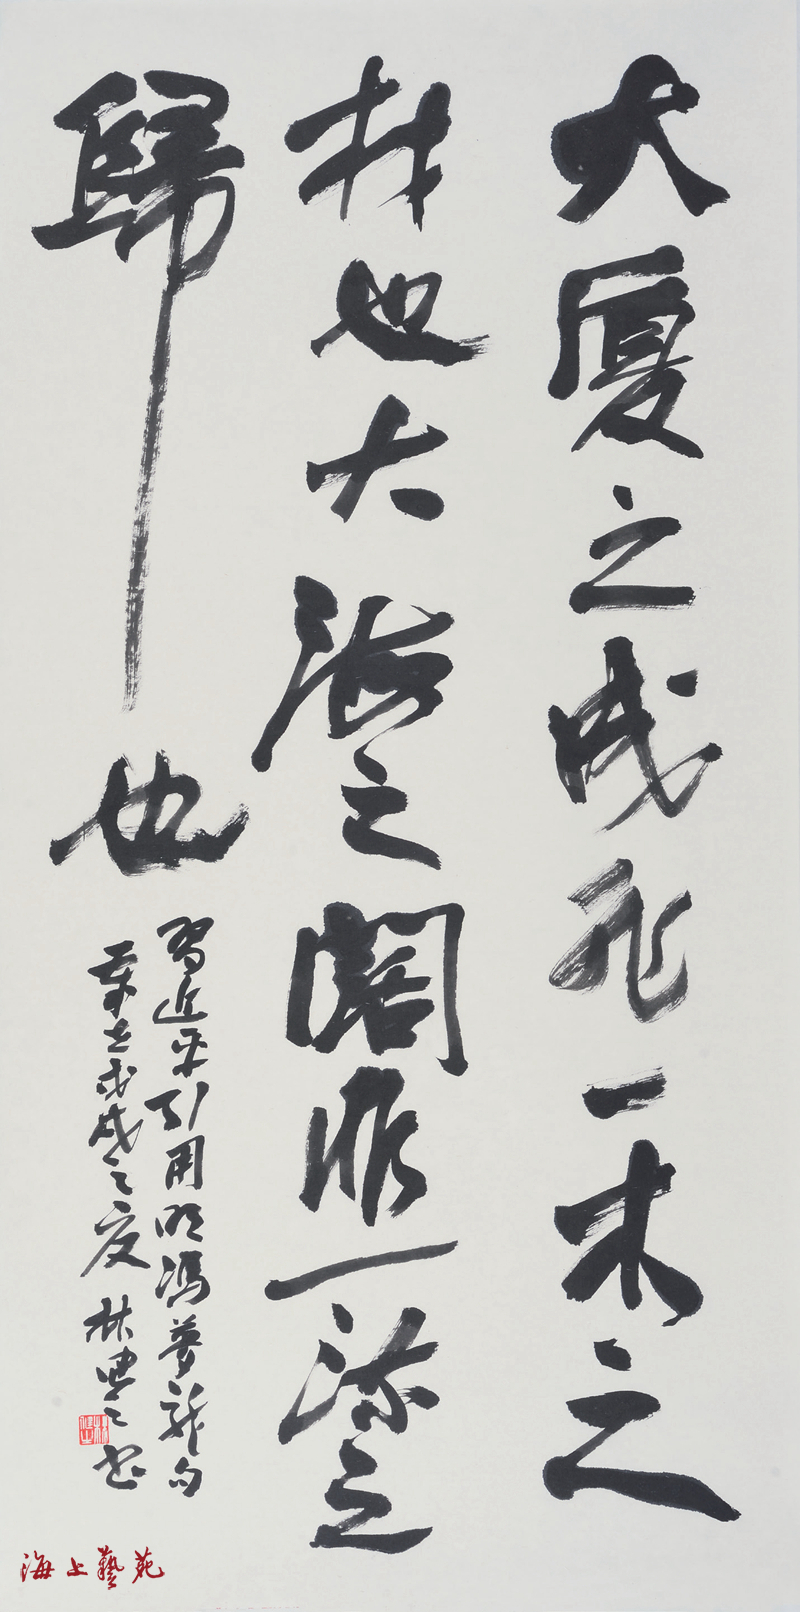 大厦之成非一木之
材也大海之闊非一流之
歸也
習近平引用明馮夢龍句
戊戌之夏 林 之書
海上藝苑